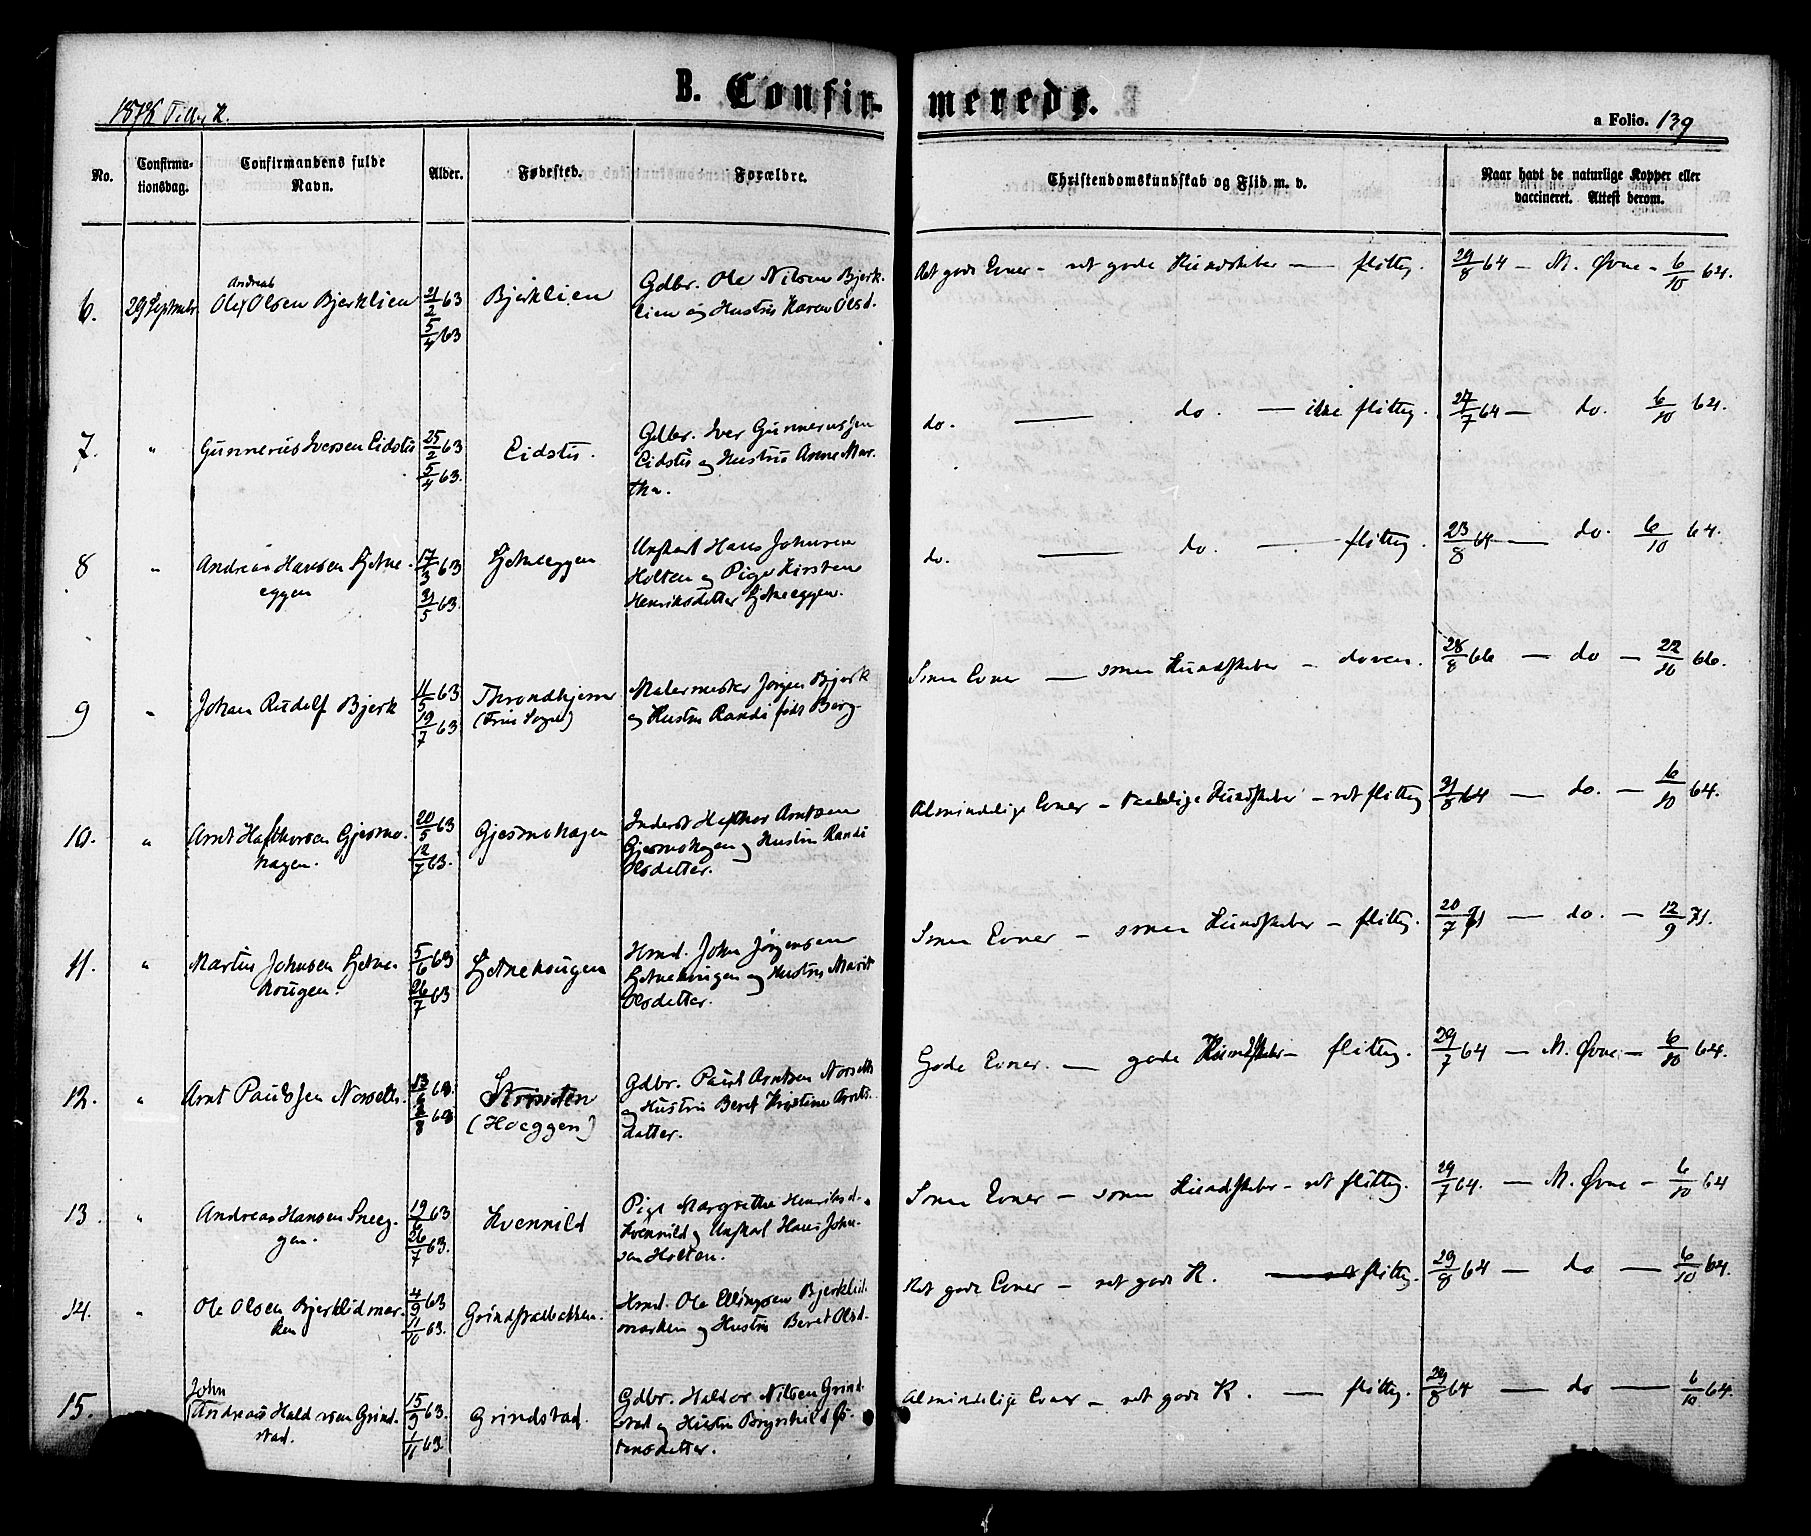 B. Confir-
merede.
1878 Tiller K.
a Folio. 139
No.
Confirma-
tionsdag.
Confirmandens fulde
Navn.
Alder.
Fødested.
Forældre.
Christendomskundskab og Flid m. v.
Naar havt de naturlige Kopper eller
vaccineret. Attest derom.
Andreas
6. 29 September Ole Olsen Bjerklien 21/2 63 5/4 63 Bjerklien
Gdbr. Ole Nilsen Bjerk-
lien og Hustru Karen Olsd.
Ret gode Evner - ret gode Kundskaber — flittig. 29/8 64 - M. Øvne - 6/10 64.
7. " Gunnerius Iversen Eidstu 25/2 63 5/4 63. Eidstu.
Gdbr. Iver Gunneriussen
Eidstu og Hustru Anne Mar-
tha.
do. — do. — ikke flittig. 27/7 64 — do. 6/10 64.
8 " Andreas Hansen Hjetne-
eggen 17/3 63 31/5 63. Hjetneeggen
Ungkarl Hans Johnsen
Holten og Pige Kirstine
Henriksdatter Hjetneeggen.
do. — do. — flittig. 23/8 64 — do. 6/10 64.
9 " Johan Rudolf Bjerk 11/5 63 19/7 63 Throndhjem
(Frue Sogn)
Malermester Jørgen Bjerk
og Hustru Randi født Berg.
Smaa Evner — smaa Kundskaber - doven. 28/8 66 — do — 22/10 66.
10. " Arnt Hafthorsen Gjesmo-
hagen. 20/5 63 12/7 63. Gjesmohagen
Inderst Hafthor Arntsen
Gjesmohagen og Hustru Randi
Olsdatter.
Almindelige Evner - taalelige Kundskaber - ret flittig 31/8 64 — do. — 6/10 64.
11. " Martin Johnsen Hjetne-
hougen. 5/6 63 26/7 63 Hjetnehougen
Hmd. John Jörgensen
Hjetnehougen og Hustru Marit
Olsdatter.
Smaa Evner - smaa Kundskaber - flittig. 20/7 71 — do. — 12/9 71.
12. " Arnt Paulsen Norseth. 13/6 63. 2/8 63
(Hoeggen)
Gdbr. Paul Arntsen Norseth
og Hustru Beret Kristine Arnts-
datter.
Gode Evner. — gode Kundskaber - flittig. 29/7 64 — M. Øvne - 6/10 64.
13. " Andreas Hansen Sneeg-
gen. 19/6 63 26/7 63. Kvennild
Pige Margrethe Henriksd.
Kvennild og Ungkarl Hans John-
sen Holten.
Smaa Evner - smaa Kundskaber - ret flittig. 29/7 64. — M. Øvne - 6/10 64
14. " Ole Olsen Bjerklidmar-
ken 4/9 63 11/10 63. Grindstadbakken.
Hmd. Ole Ellingsen Bjerklid-
marken og Hustru Beret Olsd.
Ret gode Evner - ret gode K. flittig. 29/8 64 — do — 6/10 64.
John
15. Andreas Haldorsen Grind-
stad. 15/9 63. 1/11 63 Grindstad.
Gdbr. Haldor Nilsen Grind-
stad og Hustru Brynhild Ös-
tensdatter.
Almindelige Evner - ret gode K. — flittig. 29/8 64 — do — 6/10 64.